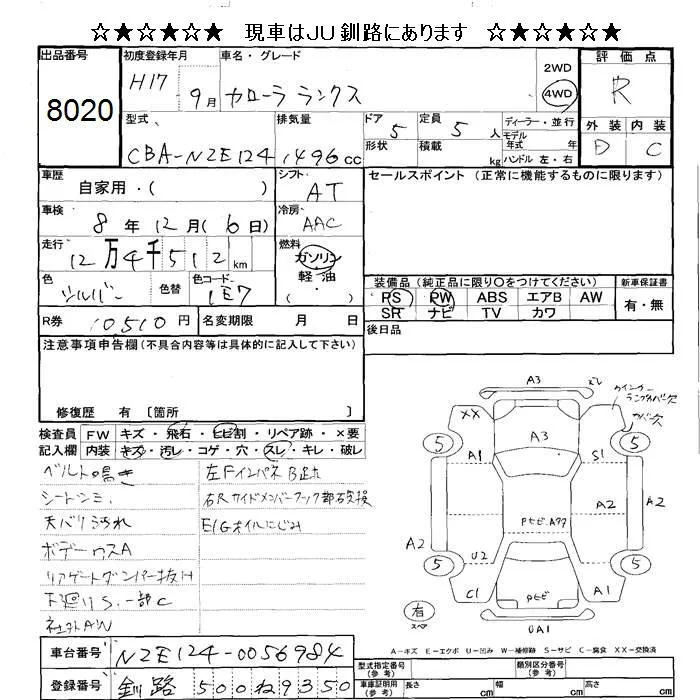 ☆★☆★☆ 現車はJU釧路にあります ☆★☆★☆
出品番号
8020
初度登録年月
H17 - 9月
車名・グレード
カローラ ランクス
2WD
4WD
評価点
R
型式
CBA-NZE124
排気量
1496cc
ドア
5
定員
5人
形状
積載
kg
ディーラー・並行
モデル
年式 年
ハンドル 左・右
外装 内装
D C
車歴
自家用・( )
シフト
AT
セールスポイント (正常に機能するものに限ります)
車検
8年12月(6日)
冷房
AAC
走行
12万4千512km
燃料
ガソリン
軽・油
( )
色
シルバー
色替
色コード
1E7
装備品(純正品に限り○をつけてください)
PS PW ABS エアB AW
SR ナビ TV カワ
新車保証書
有・無
R券 10510円
名変期限 月 日
後日品
注意事項申告欄(不具合内容等は具体的に記入して下さい)
修復歴 有〔箇所 〕
検査員
記入欄
FW キズ・飛石・ヒビ割・リペア跡・×要
内装 キズ・汚レ・コゲ・穴・スレ・キレ・破レ
ベルト鳴き
シートシミ
天バリ汚れ
ボデーウスA
リアゲートダンパー抜け
下廻りS.一部C
社外AW
左Fインパネ
右Rサイドメンバーフック部
E/Gオイルにじみ
A3
ズレ
ウインカー
ランプカバー欠
カバー欠
XX
A3
5
5
A1
S1
A2
A2
Pヒビ.A77
A2
U2
5
5
C1
PヒビA1
有
スペア
UA1
A-キズ E-エクボ U-凹み W-補修跡 S-サビ C-腐食 XX-交換済
車台番号 NZE124-0056984
登録番号 釧路 500ね9350
型式指定番号
(参考)
類別区分番号
(参考)
車庫証明用
(参考)
長さ cm
幅 cm
高さ cm